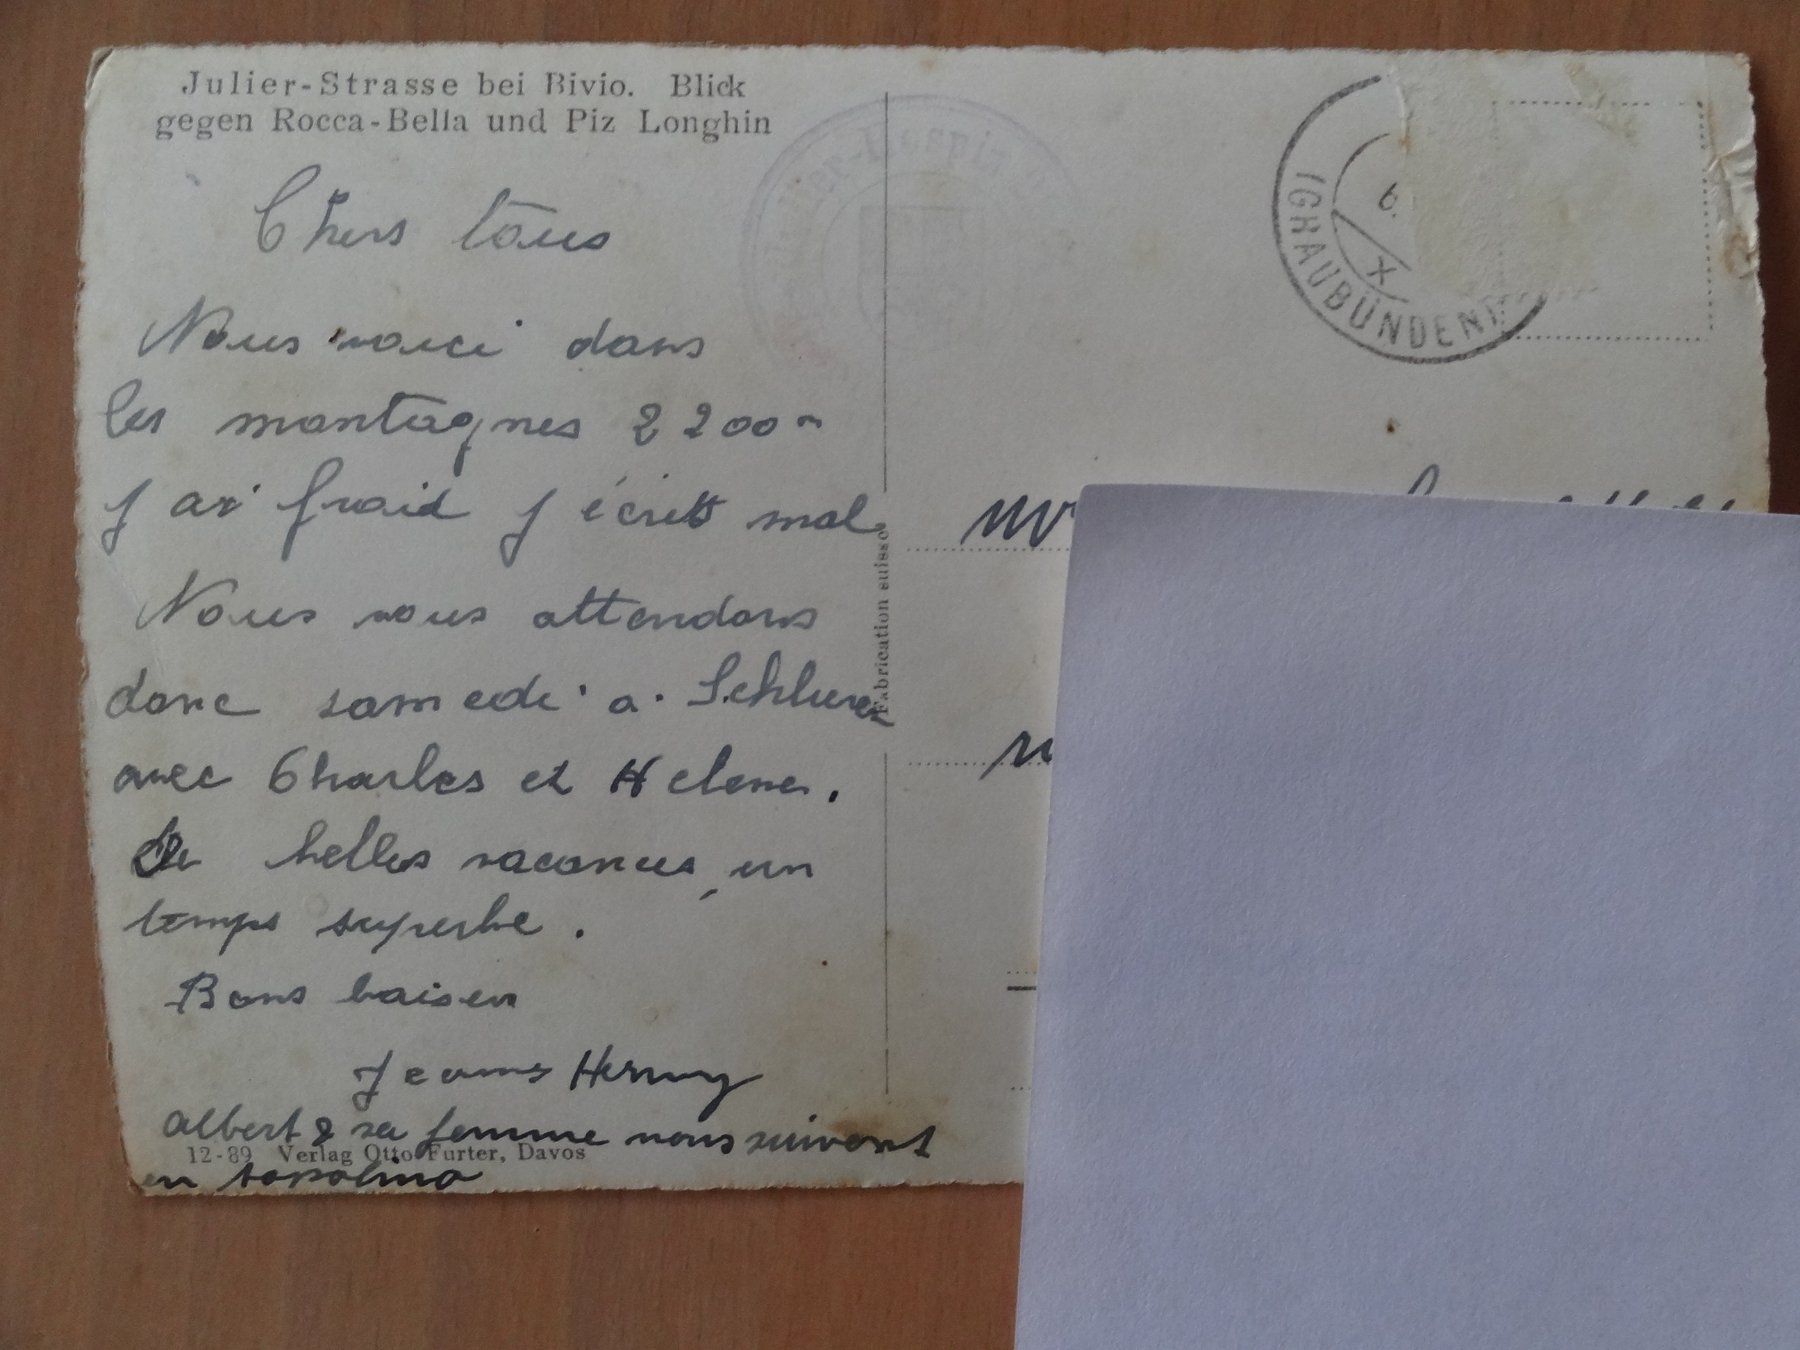 Julier-Strasse bei Bivio. Blick
gegen Rocca-Bella und Piz Longhin
Chers tous
Nous voici dans
les montagnes 2200 m
J ai froid J écrits mal
Nous vous attendons
donc samedi a
avec Charles et Helene.
De belles vacances, un
temps superbe.
Bons baisers
Henry
Albert & sa femme nous suivent
12-89 Verlag Otto Furter, Davos
en topolino
Fabrication suisse
Julier-Hospiz
6. X
(GRAUBÜNDEN)